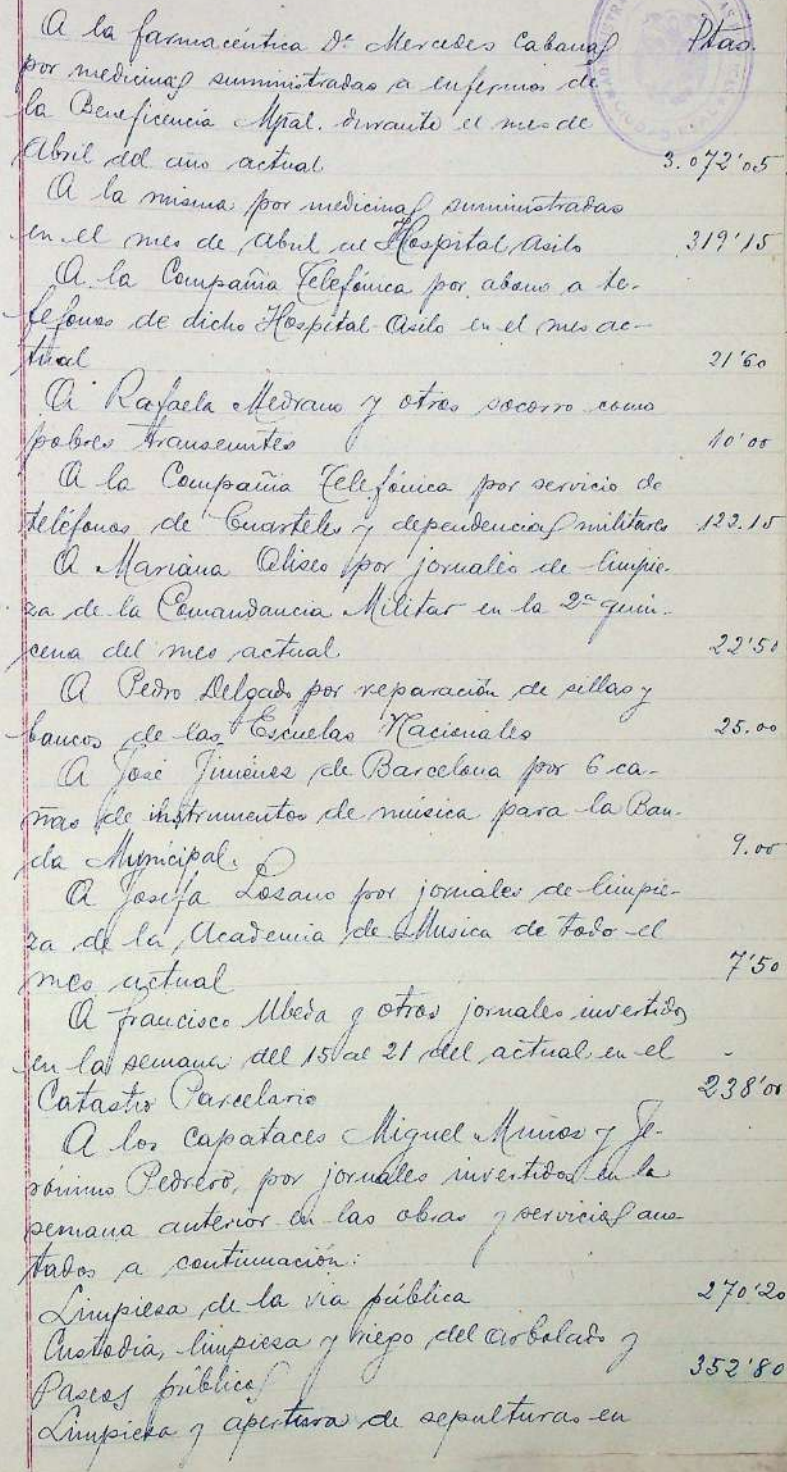 A la farmacéutica Dª Mercedes Cabanas Ptas.
por medicinas suministradas a enfermos de
la Beneficencia Mpal. durante el mes de
Abril del año actual 3.072'05
A la misma por medicinas suministradas
en el mes de Abril al Hospital Asilo 319'15
A la Compañia Telefónica por abono a te-
lefonos de dicho Hospital-Asilo en el mes ac-
tual 21'60
A Rafaela Medrano y otros socorro como
pobres transeuntes 10'00
A la Compañia Telefónica por servicio de
teléfonos de Cuarteles y dependencias militares 122.15
A Mariana Oliseo por jornales de limpie-
za de la Comandancia Militar en la 2ª quin-
cena del mes actual 22'50
A Pedro Delgado por reparación de sillas y
bancos de las Escuelas Nacionales 25.00
A José Jiménez de Barcelona por 6 ca-
ñas de instrumentos de música para la Ban-
da Municipal. 9.00
A Josefa Lozano por jornales de limpie-
za de la Academia de Musica de todo el
mes actual 7'50
A francisco Ubeda y otros jornales invertidos
en la semana del 15 al 21 del actual en el
Catastro Parcelario 238'00
A los capataces Miguel Muños y Je-
rónimo Pedrero, por jornales invertidos en la
semana anterior en las obras y servicios ano-
tados a continuación:
Limpiesa de la via pública 270'20
Custodia, limpiesa y riego del arbolado y
Paseos públicos 352'80
Limpieza y apertura de sepulturas en